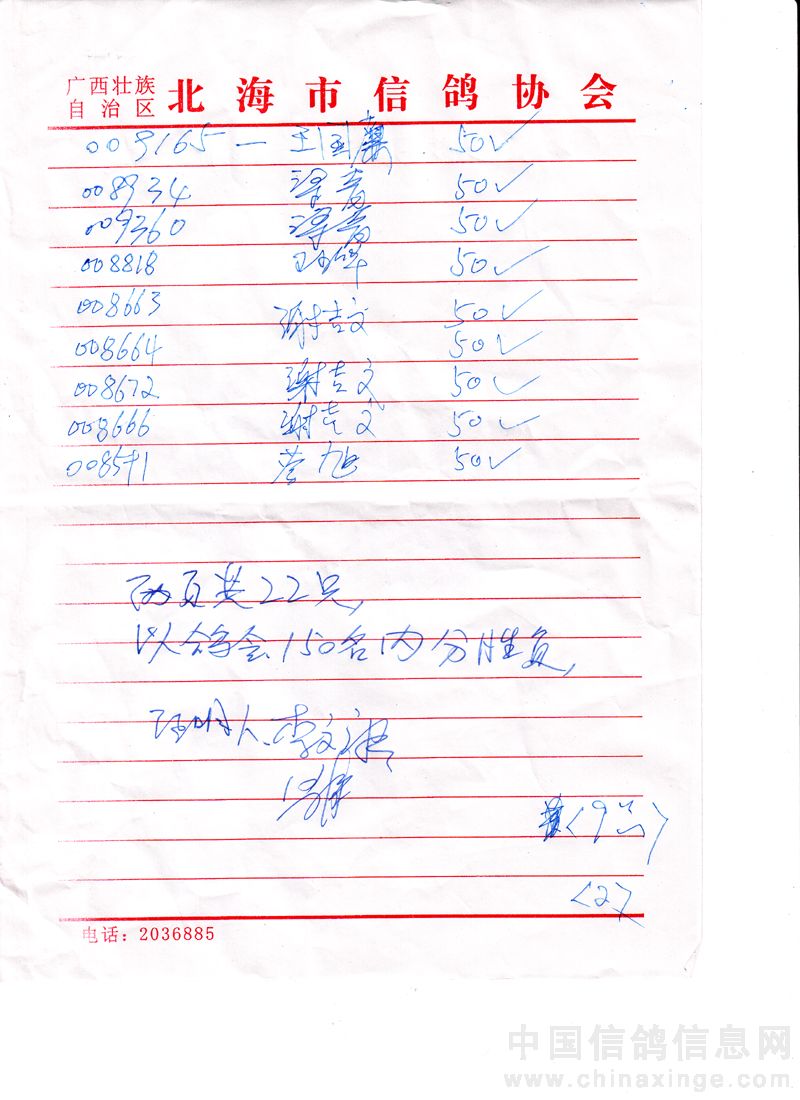 广西壮族
自治区
北海市信鸽协会
009165 — 王国 50✓
008934 梁 50✓
009360 梁 50✓
008818 50✓
008663 谢吉文 50✓
008664 50✓
008672 谢吉文 50✓
008666 谢吉文 50✓
008541 旭 50✓
两页共22只,
以鸽会150名内分胜负,
证明人、李文
<9只>
<2>
电话：2036885
中国信鸽信息网
www.chinaxinge.com